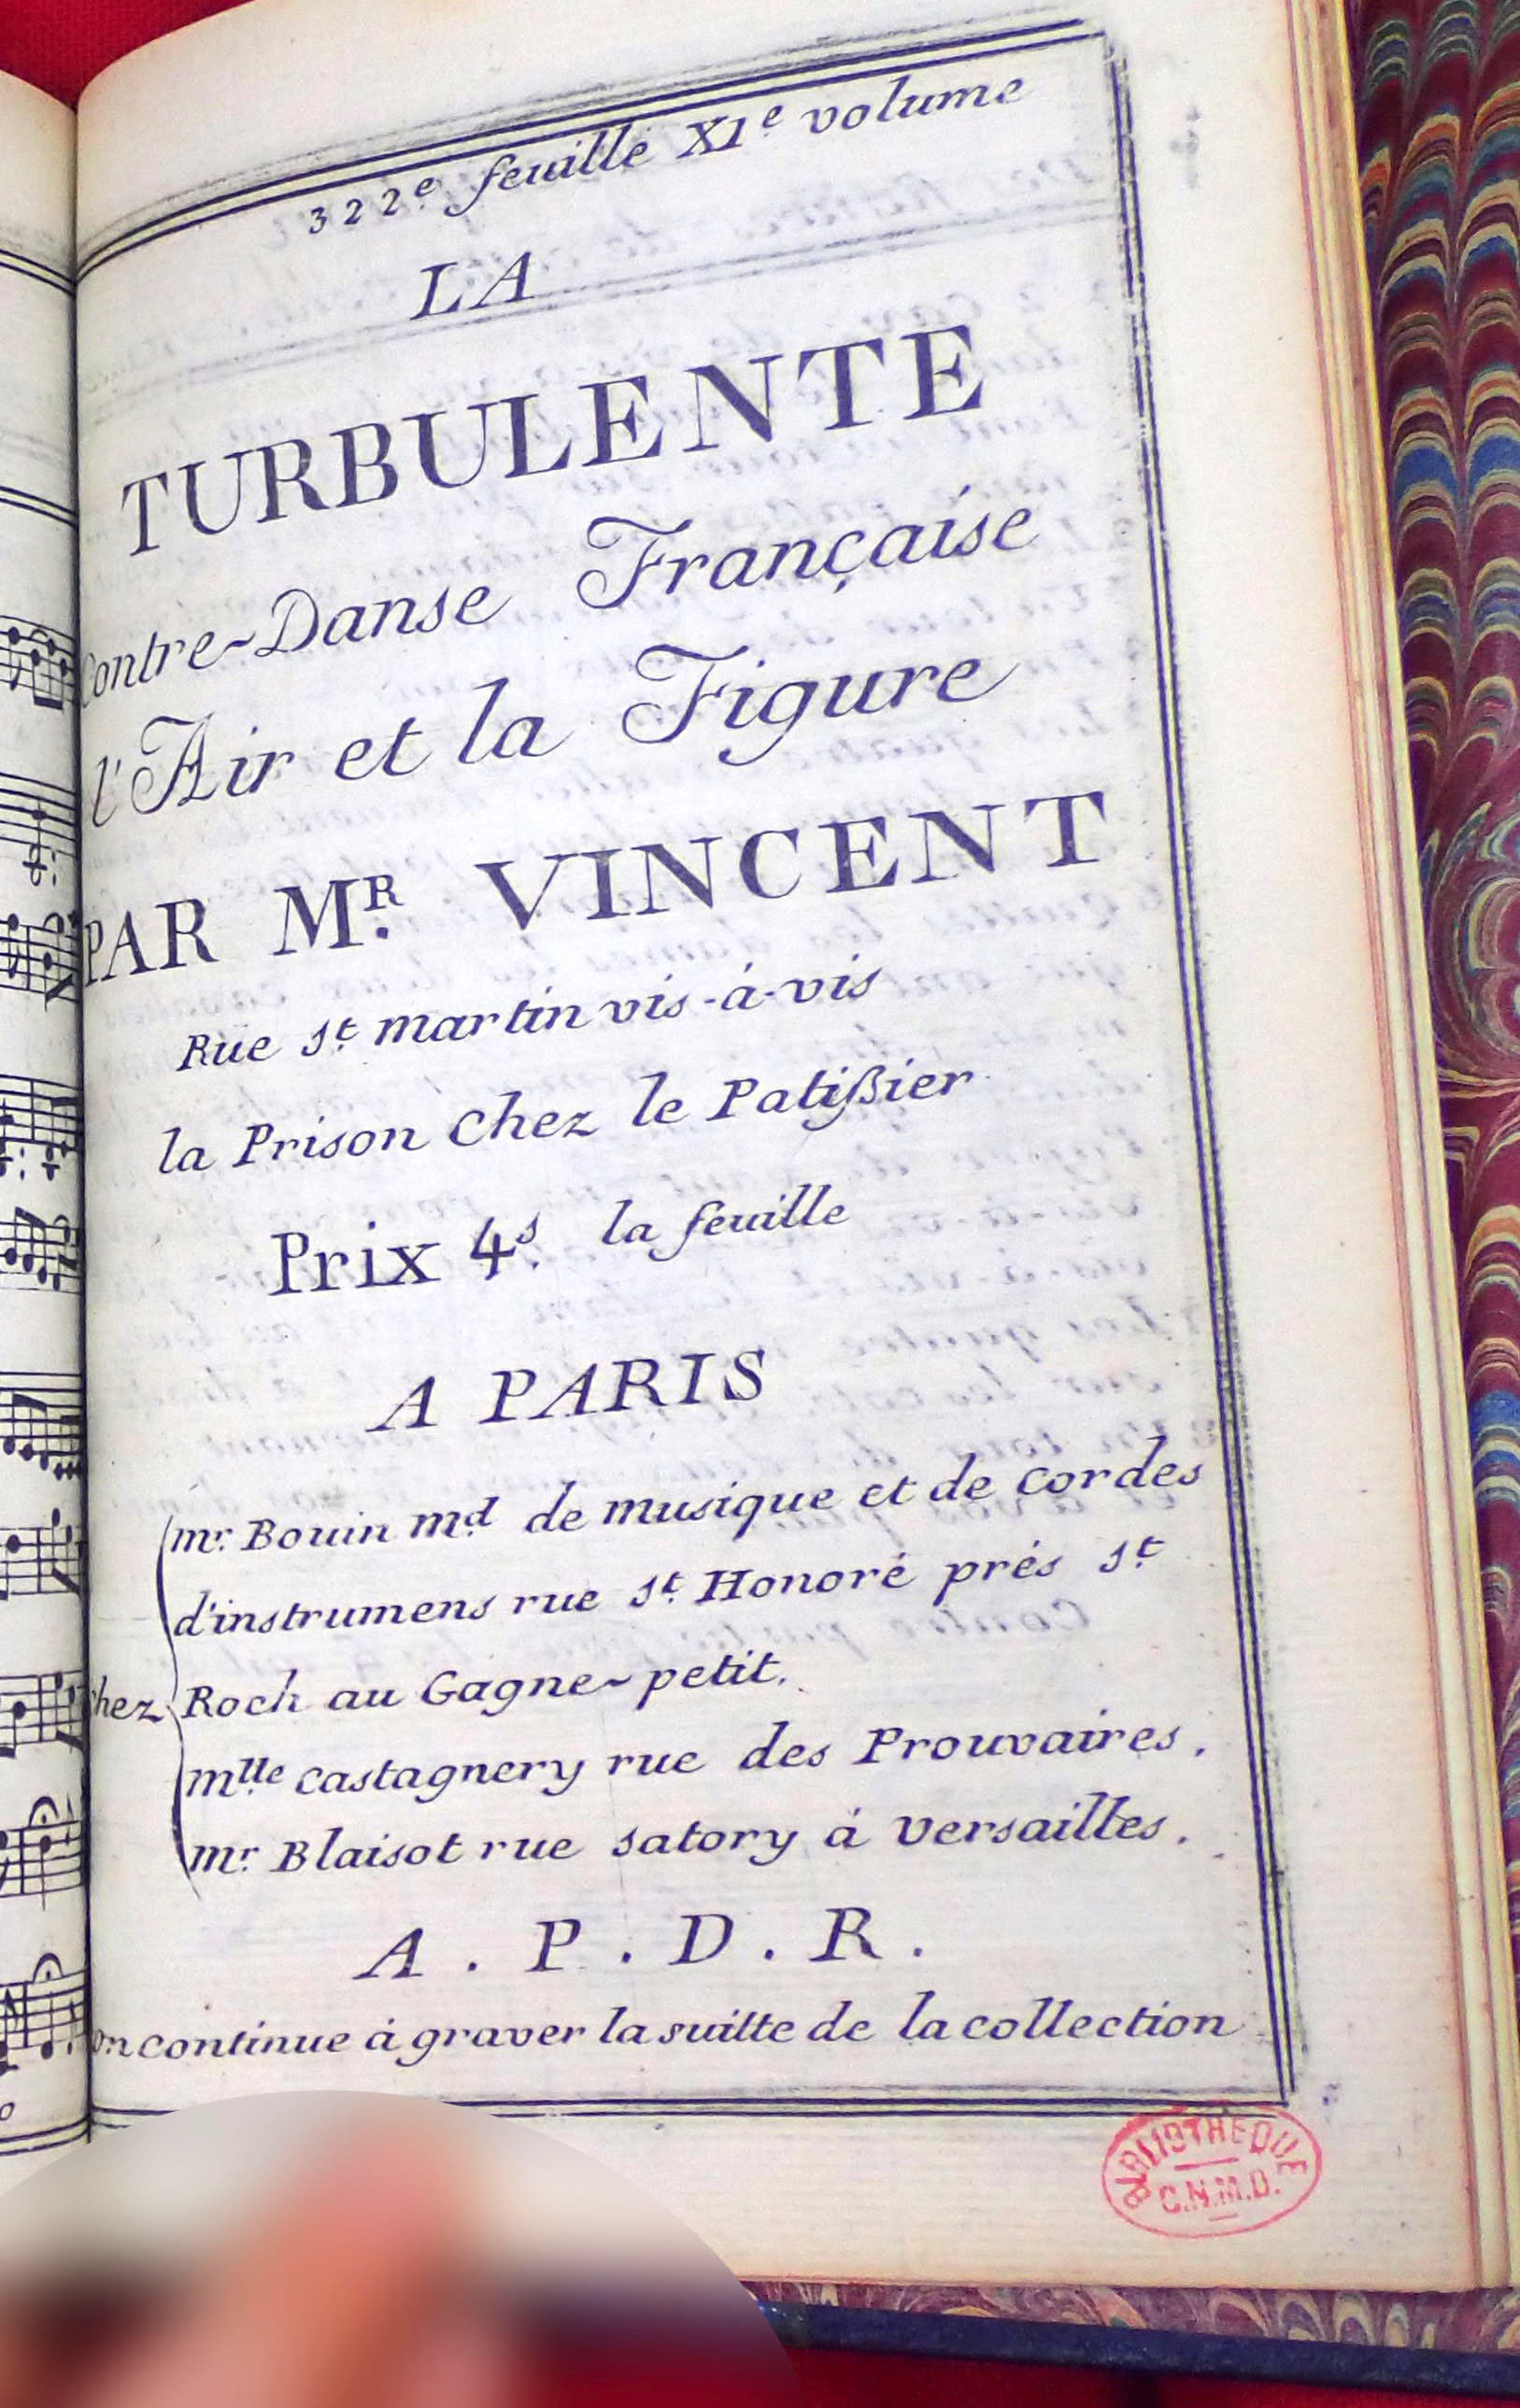 322e. feuille XIe volume
LA
TURBULENTE
Contre-Danse Française
l'Air et la Figure
PAR MR. VINCENT
Rüe St. martin vis-à-vis
la Prison chez le Patißier
Prix 4s. la feuille
A PARIS
mr. Bouin md. de musique et de cordes
d'instrumens rue St. Honoré prés St
chez Roch au Gagne-petit.
mlle castagnery rue des Prouvaires.
mr. Blaisot rue satory á versailles.
A . P . D . R .
on continue á graver la suitte de la collection
BIBLIOTHEQUE
C.N.M.D.